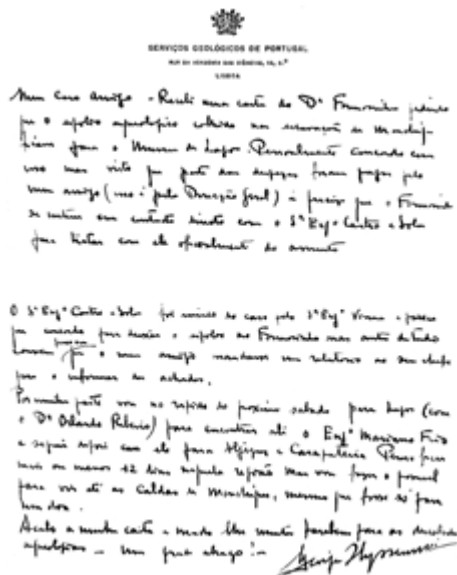 SERVIÇOS GEOLÓGICOS DE PORTUGAL
RUA DA ACADEMIA DAS CIÊNCIAS, 19, 2.º
LISBOA
Meu Caro Amigo - Recebi uma carta do Dr Formosinho pedindo
que o espólio arqueológico colhido nas escavações de Monchique
fique para o Museu de Lagos. Pessoalmente concordo com
isso mas visto que parte das despezas foram pagas pelo
meu amigo (isto é pela Direcção Geral) é preciso que o Formosinho
se entre em contacto directo com o Sr Engº Castro e Sola
para tratar com ele oficialmente do assunto
O Sr Engº Castro e Sola foi do caso pelo Sr Engº Viana e parece
que concorda para deixar o espólio ao Formosinho mas antes de tudo
que o meu amigo mandasse um relatório ao seu chefe
para o informar dos achados.
Por minha parte vou no rápido do próximo sabado para Lagos (com
o Dr Orlando Ribeiro) para encontrar ali o Engº Mariano Feio
e seguir depois com ele para Aljezur e Carrapateira. Penso ficar
mais ou menos 12 dias naquela região mas vou fazer o possivel
para vir até as Caldas de Monchique, mesmo que fosse só para
um dia.
Acabo a minha carta e mando lhe muitos parabens para as descobertas
arqueológicas - um grande abraço! -